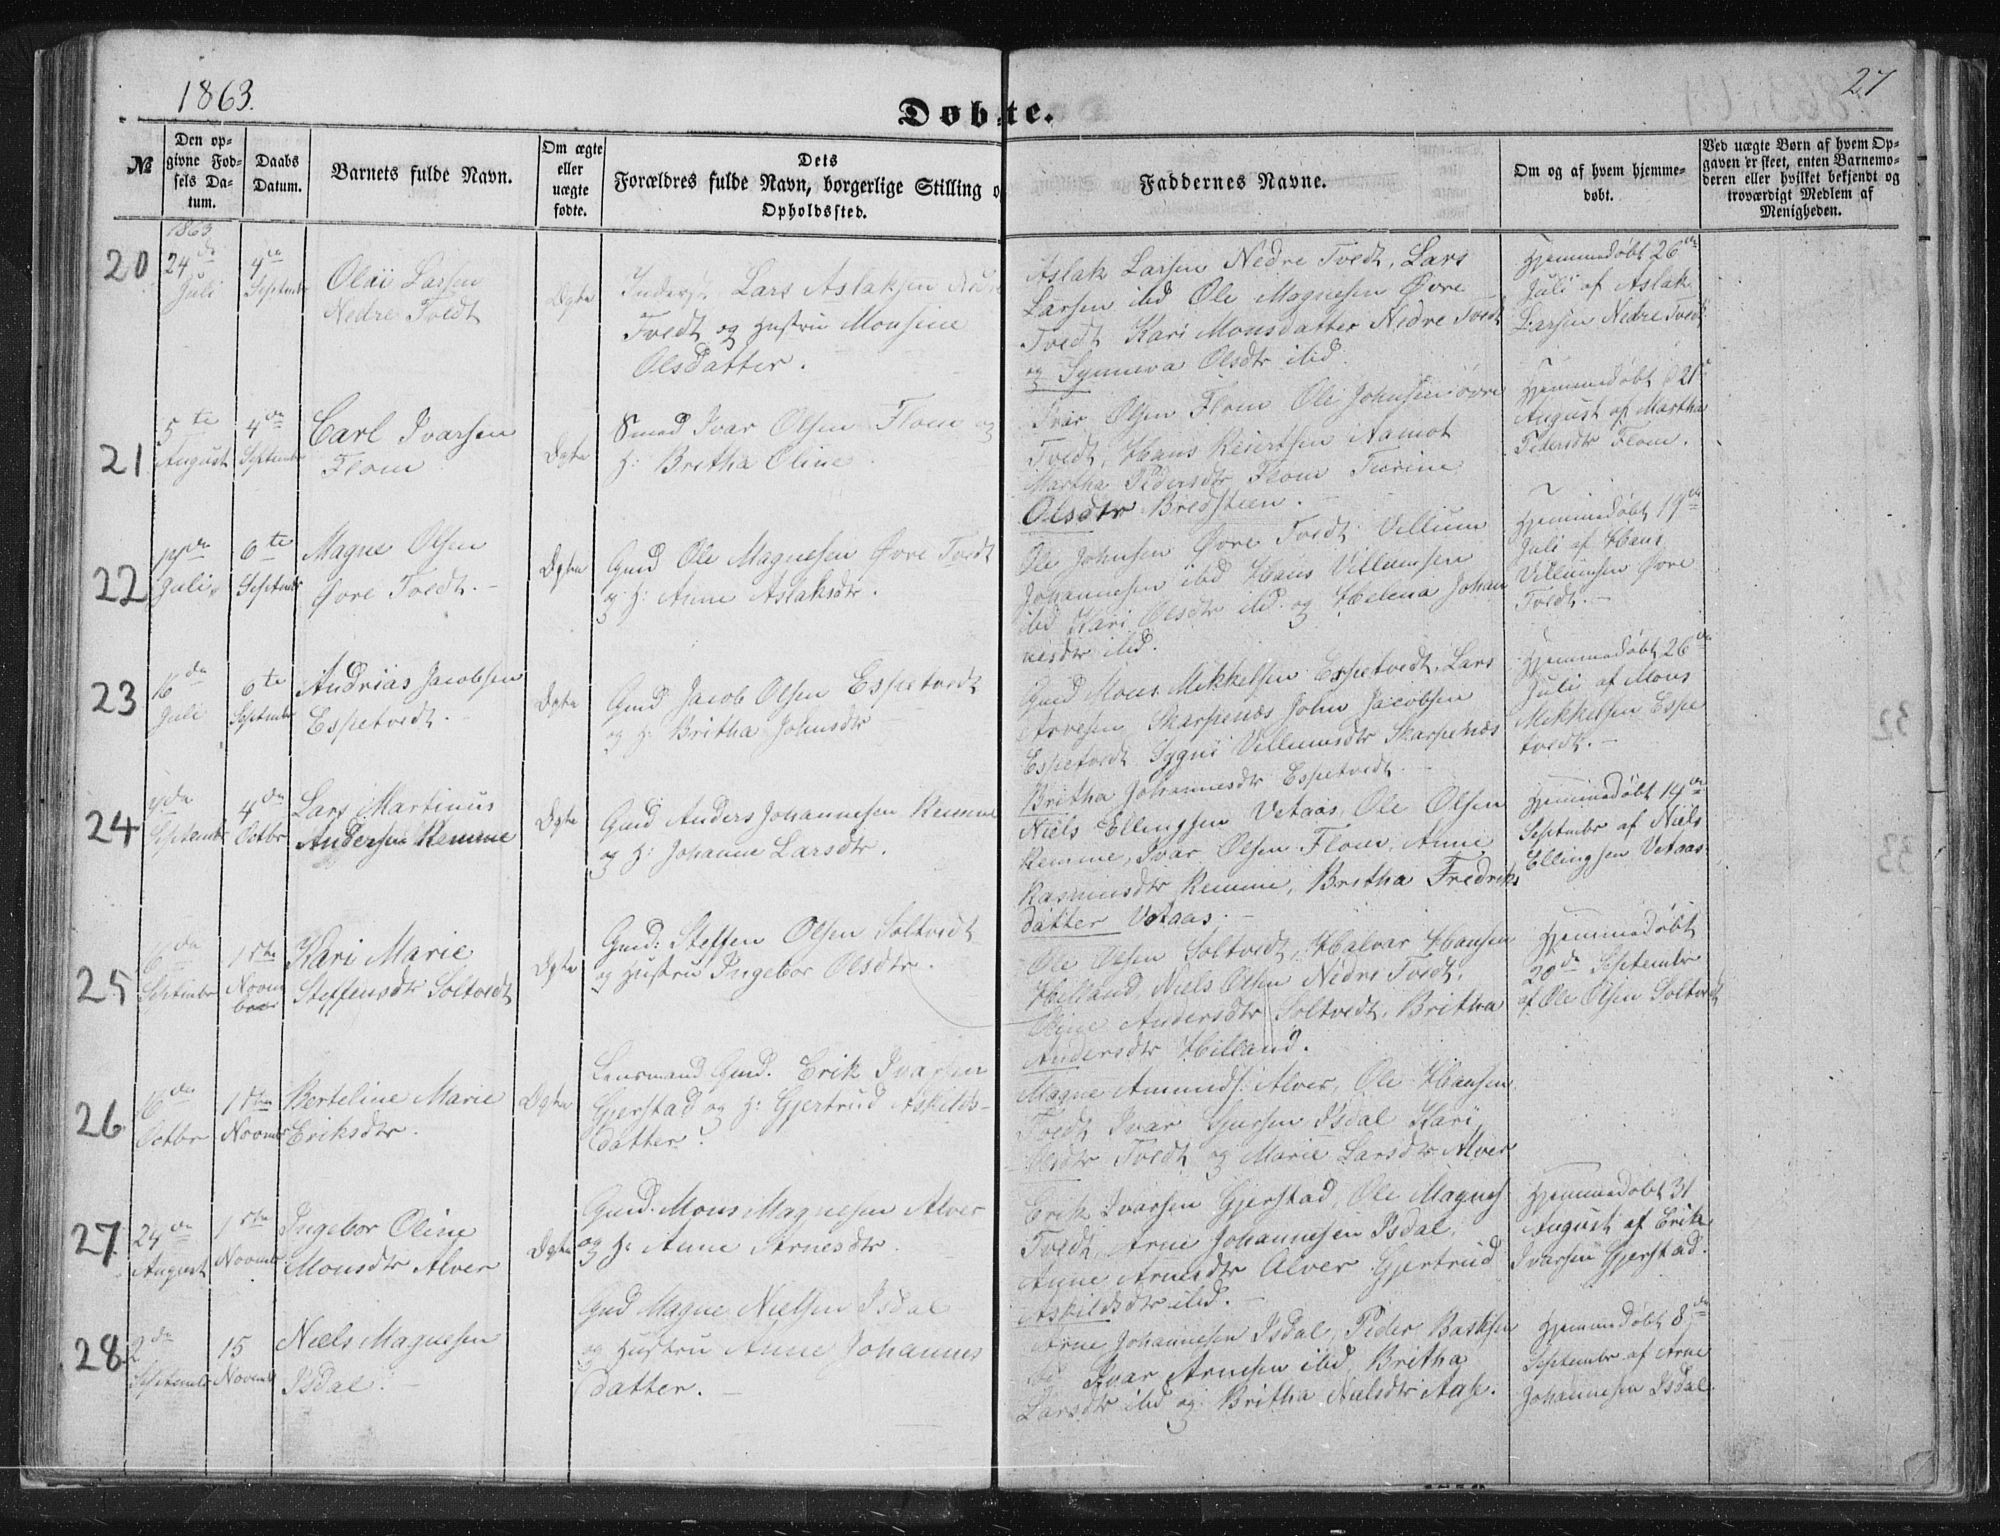 1863.
27
Døbte.
№
Den op-
givne Fød-
sels Da-
tum.
Daabs
Datum.
Barnets fulde Navn.
Om ægte
eller
uægte
fødte.
Dets
Forældres fulde Navn, borgerlige Stilling o
Opholdssted.
Faddernes Navne.
Om og af hvem hjemme-
døbt.
Ved uægte Børn af hvem Op-
gaven er skeet, enten Barnemo-
deren eller hvilket bekjendt og
troværdigt Medlem af
Menigheden.
20
1863
24de
Juli
4de
Septembr
Olai Larsen
Nedre Tvedt
Ægte
Inderst Lars Aslaksen
Tvedt og Hustru Monsine
Olsdatter.
Aslak Larsen Nedre Tvedt, Lars
Larsen ibid Ole Magnesen Øvre
Tvedt Kari Monsdatter Nedre Tvedt
og Synneva Olsdtr ibid.
Hjemmedøbt 26de
Juli af Aslak
Larsen Nedre Tvedt
21
5te
August
4de
Septembr
Carl Ivarsen
Flom
Ægte
Smed Ivar Olsen Flom og
H: Britha Oline.
Ivar Olsen Flom Ole Johnsen øvre
Tvedt, Hans Reiertsen Namot
Martha Pedersdtr Flom
Olsdtr Bredsteen.
Hjemmedøbt 21
August af Martha
Pedersdtr Flom.
22
Juli
6te
Septembr
Magne Olsen
Øvre Tvedt.
Ægte
Gmd Ole Magnesen Øvre Tvedt
og H: Anne Aslaksdtr.
Ole Johnsen Øvre Tvedt Villum
Johannesen ibid Hans Villumsen
ibid Kari Olsdtr ibid. og Helena Johan
nesdtr ibid.
Hjemmedøbt 19de
Juli af Hans
Villumsen Øvre
Tvedt.
23
16de
Juli
6te
Septembr
Andrias Jacobsen
Espetvedt.
Ægte
Gmd Jacob Olsen Espetvedt
og H: Britha Johnsdtr
Gmd Mons Mikkelsen Espetvedt, Lars
Skarpenæs John Jacobsen
Espetvedt Villumsdtr Skarpenæs
Britha Johannesdtr Espetvedt.
Hjemmedøbt 26de
Juli af Mons
Mikkelsen Espe
tvedt.
24
Septembr
4de
Octbr
Lars Martinus
Andersen Remme
Ægte
Gmd Anders Johannesen Remme
og H: Johanne Larsdtr.
Niels Ellingsen Vetaas, Ole Olsen
Remme, Ivar Olsen Flom, Anne
Rasmusdtr Remme, Britha Fredriks
datter Vetaas.
Hjemmedøbt 14de
Septembr af Niels
Ellingsen Vetaas.
25
6de
Septembr
1ste
Novem
ber
Kari Marie
Steffensdtr Soltvedt
Ægte
Gmd: Steffen Olsen Soltvedt
og Hustru Ingebor Olsdtr.
Ole Olsen Soltvedt, Halvar Hansen
Helland, Niels Olsen Nedre Tvedt,
Andersdtr Soltvedt, Britha
Andersdtr Hilland.
Hjemmedøbt
20de Septembr
af Ole Olsen Soltvedt
26
Octbr
1ste
Novmbr
Berteline Marie
Eriksdtr.
Ægte
Lensmand Gmd. Erik Ivarsen
Gjerstad og H: Gjertrud Askilds-
datter.
Magne Amunds: Alver, Ole Hansen
Tvedt Ivar Isdal Kari
Olsdtr Tvedt og Marie Larsdtr Alver
27
24de
August
1ste
Novembr
Ingebor Oline
Monsdtr Alver
Ægte
Gmd. Mons Magnesen Alver
og H: Anne Arnesdtr.
Erik Ivarsen Gjerstad, Ole Magnes
Tvedt, Arne Johannesen Isdal,
Anne Arnesdtr Alver Gjertrud
Askildsdtr ibid.
Hjemmedøbt 31
August af Erik
Ivarsen Gjerstad.
28
2de
Septembr
15
Novembr
Niels Magnesen
Isdal.
Gmd Magne Nielsen Isdal
og Hustru Anne Johannes
datter.
Arne Johannesen Isdal, Peder
Ivar Arnesen ibid, Britha
Larsdtr ibid og Britha Nielsdtr
Hjemmedøbt 8de
Septembr af Arne
Johannesen Isdal.